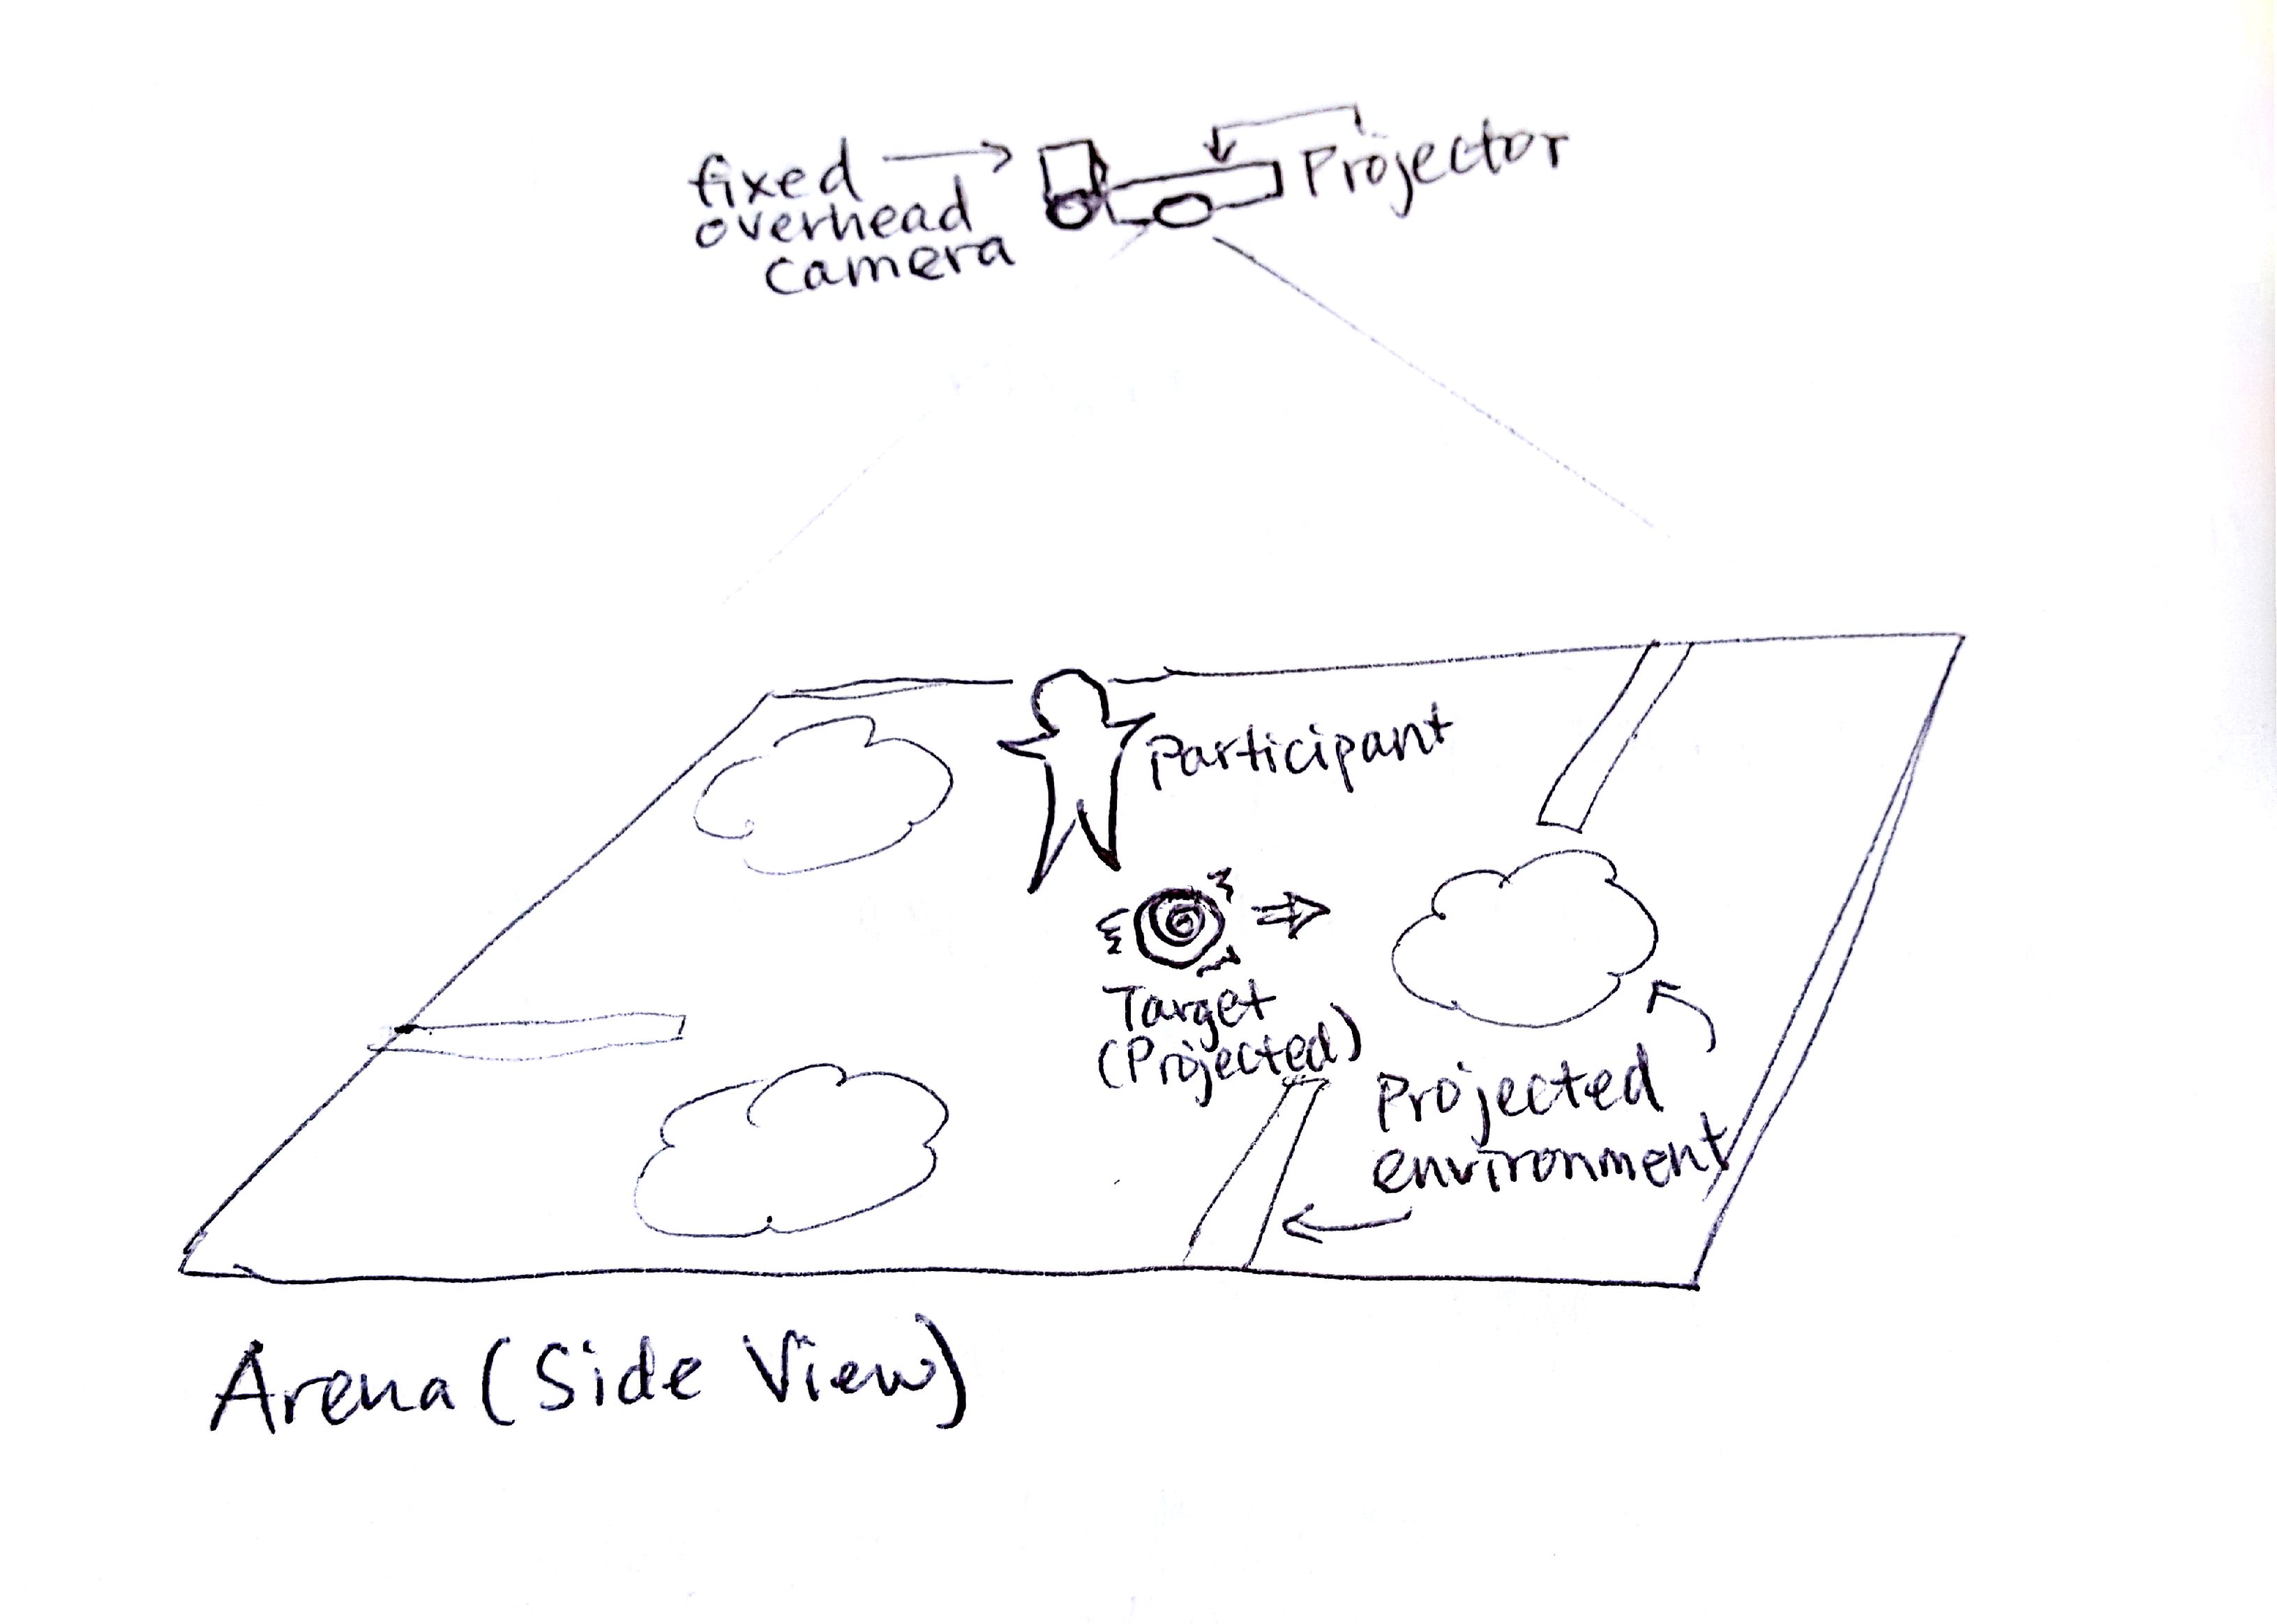 fixed
overhead
camera
Projector
Participant
Target
(Projected)
Projected
environment
Arena (Side View)